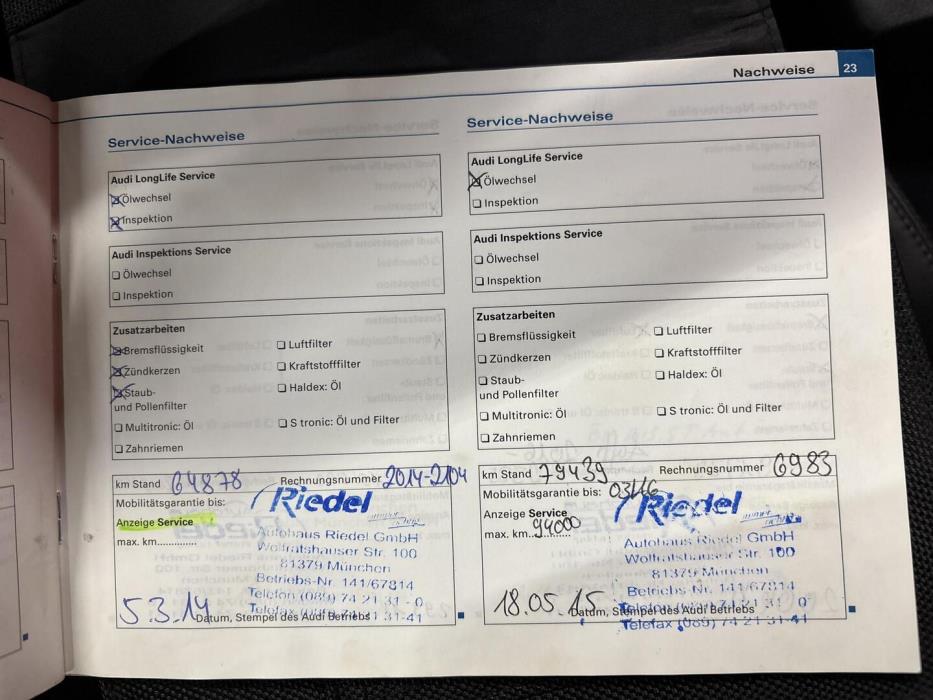 Nachweise 23
Service-Nachweise
Audi LongLife Service
Ölwechsel
Inspektion
Audi Inspektions Service
Ölwechsel
Inspektion
Zusatzarbeiten
Bremsflüssigkeit
Luftfilter
Zündkerzen
Kraftstofffilter
Staub-
und Pollenfilter
Haldex: Öl
Multitronic: Öl
S tronic: Öl und Filter
Zahnriemen
km Stand 64878 Rechnungsnummer 2014-2104
Mobilitätsgarantie bis:
Riedel
Anzeige Service
max. km............
Autohaus Riedel GmbH
Wolfratshauser Str. 100
81379 München
Betriebs-Nr. 141/67814
Telefon (089) 74 21 31 - 0
Telefax (089) 74 21 31-41
5.3.14
Datum, Stempel des Audi Betriebs
Service-Nachweise
Audi LongLife Service
Ölwechsel
Inspektion
Audi Inspektions Service
Ölwechsel
Inspektion
Zusatzarbeiten
Bremsflüssigkeit
Luftfilter
Zündkerzen
Kraftstofffilter
Staub-
und Pollenfilter
Haldex: Öl
Multitronic: Öl
S tronic: Öl und Filter
Zahnriemen
km Stand 79439 Rechnungsnummer 6983
Mobilitätsgarantie bis: 03/16
Riedel
Anzeige Service
max. km 94000
Autohaus Riedel GmbH
Wolfratshauser Str. 100
81379 München
Betriebs-Nr. 141/67814
Telefon (089) 74 21 31 - 0
Telefax (089) 74 21 31-41
18.05.15
Datum, Stempel des Audi Betriebs